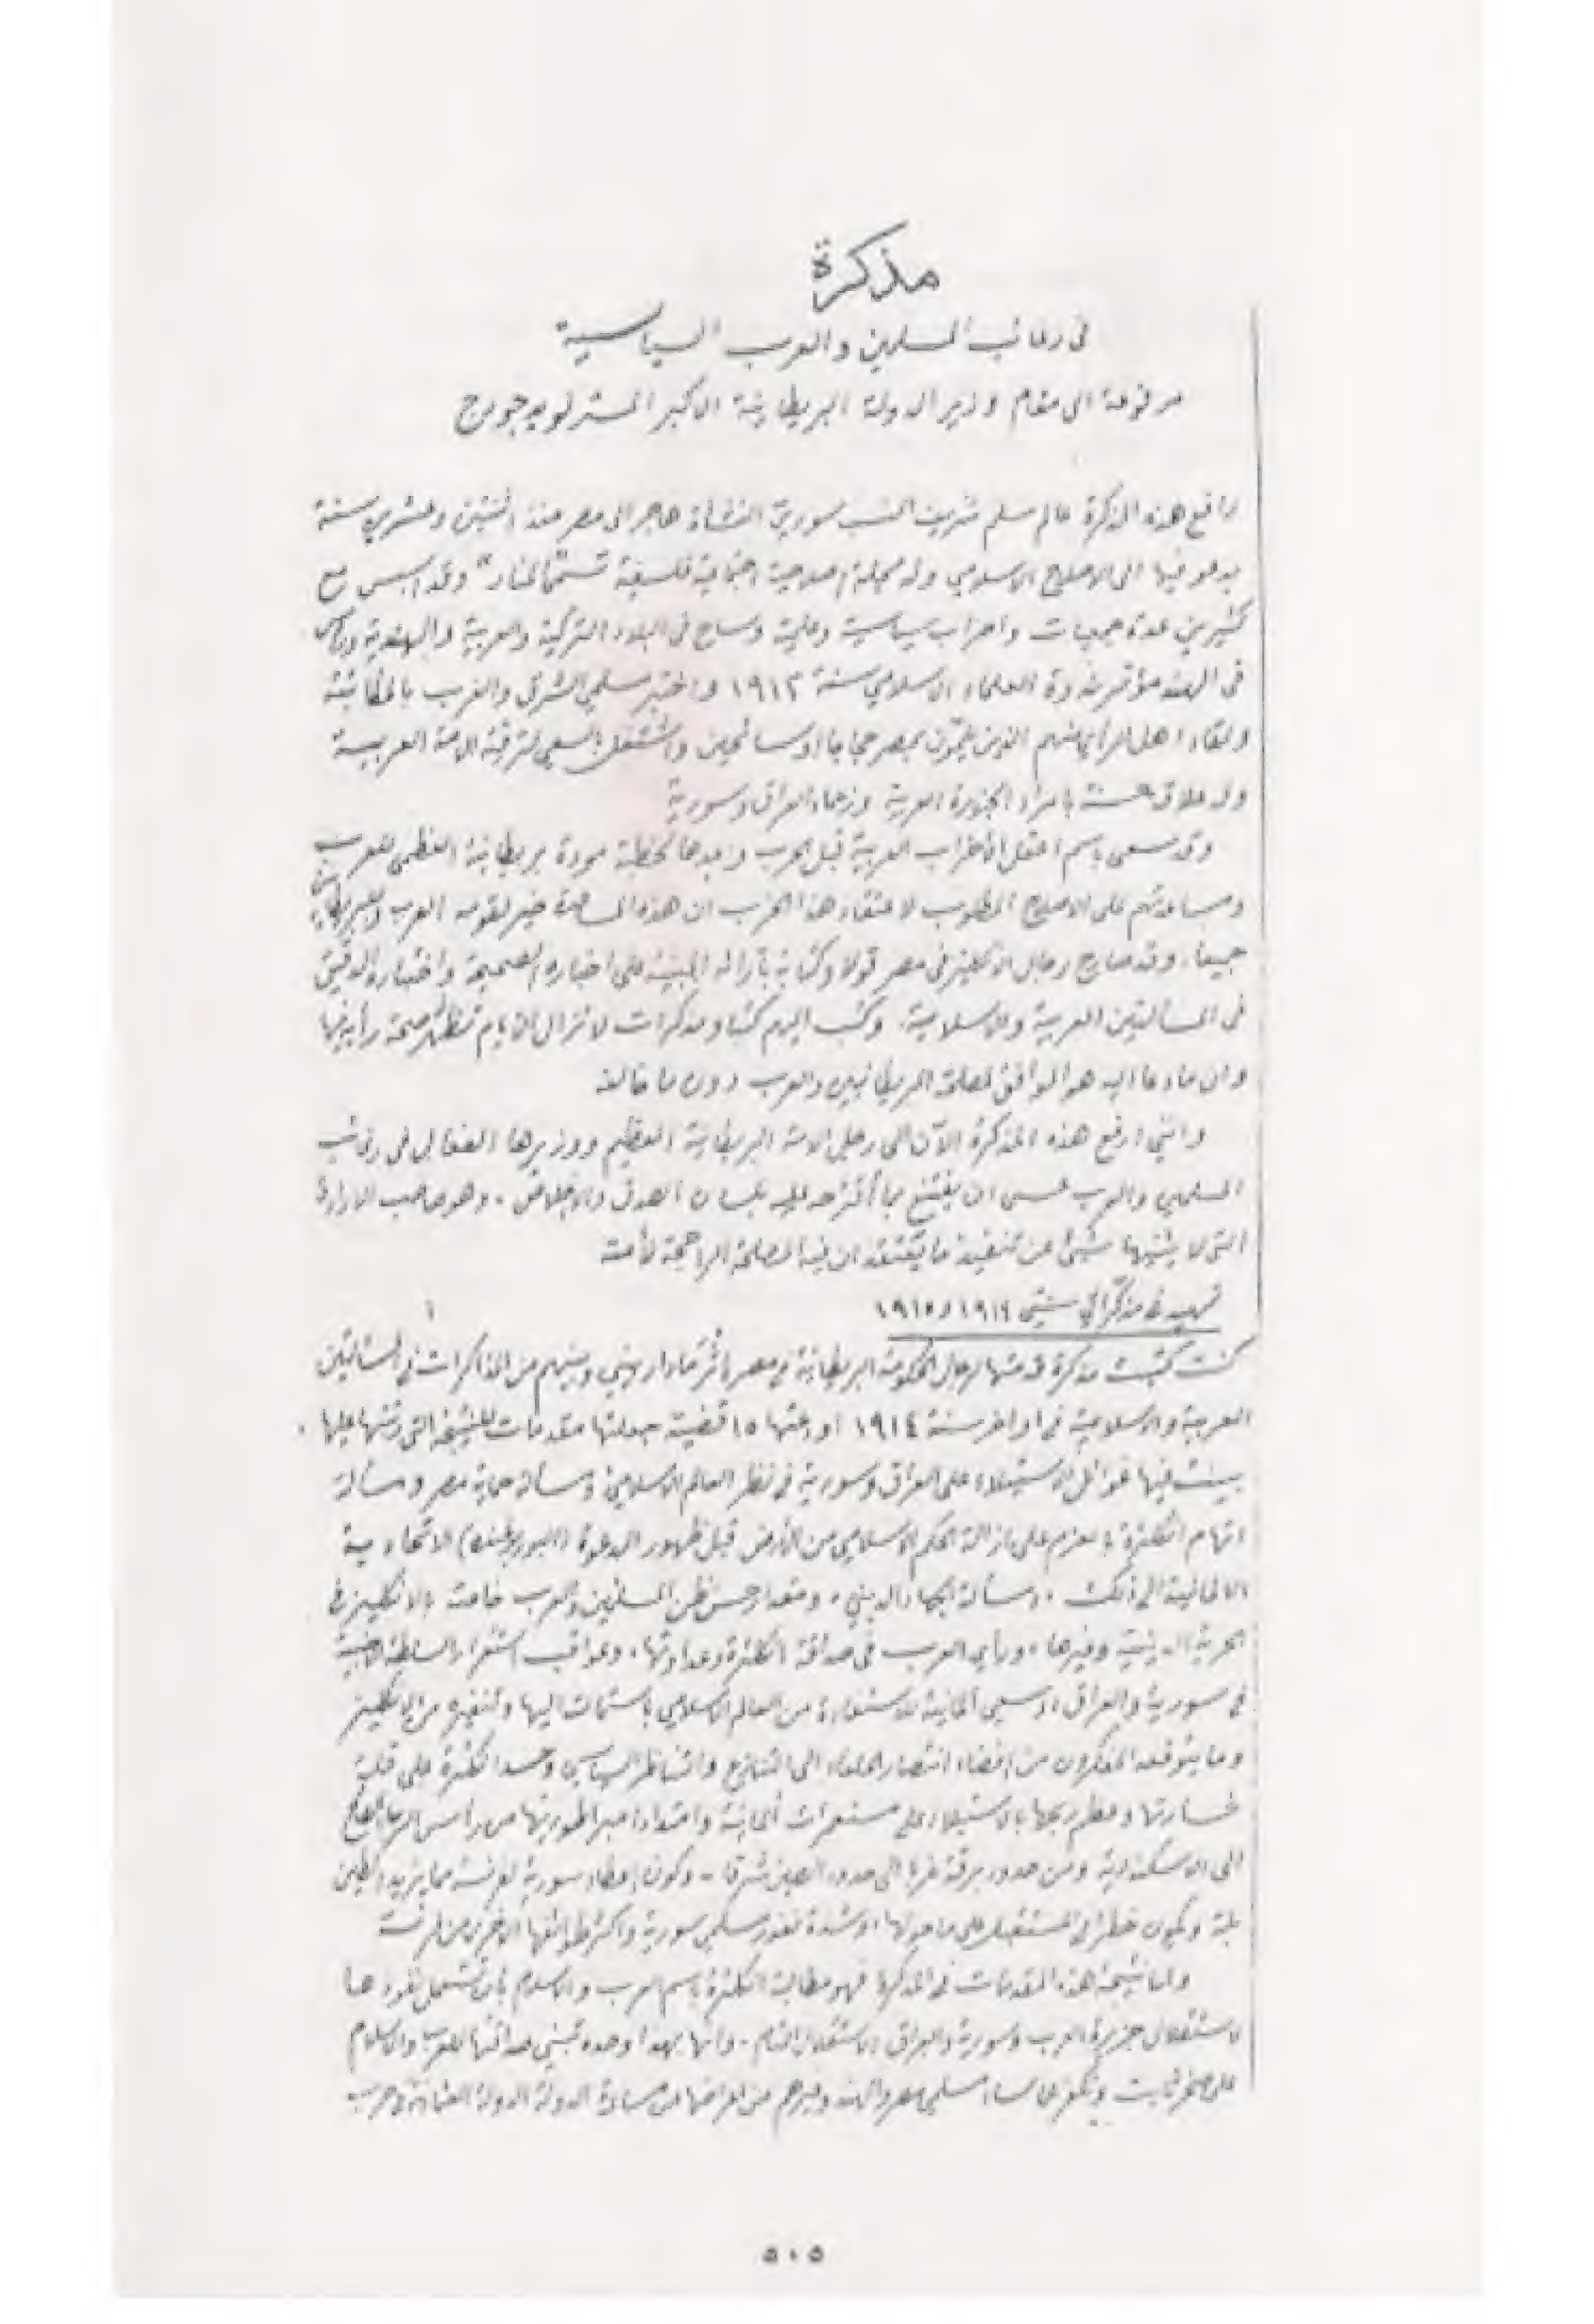 مذكرة
في رغائب المسلمين والعرب السياسية
مرفوعة الى مقام وزير الدولة البريطانية الاكبر المستر لويد جورج
رافع هذه المذكرة عالم مسلم شريف النسب سوري النشأة هاجر الى مصر منذ اثنتين وعشرين سنة
يدعو فيها الى الاصلاح الاسلامي وله مجلة اصلاحية اجتماعية فلسفية تسمى "المنار" وقد اسس مع
كثيرين عدة جمعيات واحزاب سياسية وعلمية وساح في البلاد التركية والعربية والهندية ورأس
في الهند مؤتمر ندوة العلماء الاسلامي سنة ١٩١٢ واختبر مسلمي الشرق والغرب بالمكاتبة
ولقاء اهل الرأي منهم الذين يلمون بمصر حجاجا او سائحين واشتغل بالسعي لترقية الامة العربية
وله علاقة حسنة بامراء الجزيرة العربية وزعماء العراق وسورية
وقد سعى باسم اعقل الأحزاب العربية قبل الحرب وبعدها لخطبة مودة بريطانية العظمى للعرب
ومساعدتهم على الاصلاح المطلوب لاعتقاد هذا الحزب ان هذه المساعدة خير لقومه العرب وللبريطانيين
جميعا. وقد صارح رجال الانكليز في مصر قولا وكتابة بآرائه المبنية على اخباره الصحيحة واختباره الدقيق
في المسألتين العربية والاسلامية. وكتب اليهم كتبا ومذكرات لا تزال الأيام تظهر صحة رأيه فيها
وان ما دعا اليه هو الموافق لمصلحة البريطانيين والعرب دون ما خالفه
وانني ارفع هذه المذكرة الآن الى رجل الامة البريطانية العظيم ووزيرها الفعال في رغائب
المسلمين والعرب عسى ان يقتنع بما أقترحه عليه بلسان الصدق والاخلاص. وهو صاحب الارادة
التي لا يثنيها شيئ عن تنفيذ ما يعتقد ان فيه المصلحة الراجحة لأمته
تمهيد في مذكراتي سنتي ١٩١٤ و١٩١٥
كنت كتبت مذكرة قدمتها لرجال الحكومة البريطانية في مصر اثر ما دار بيني وبينهم من المذاكرات في المسألتين
العربية والاسلامية في اواخر سنة ١٩١٤ اودعتها ١٥ قضية جعلتها مقدمات للنتيجة التي رتبتها عليها.
بينت فيها غوائل الاستيلاء على العراق وسورية في نظر العالم الاسلامي ومسألة حماية مصر ومسألة
اتهام انكلترة بالعزم على ازالة الحكم الاسلامي من الأرض قبل ظهور الدعوة (البوربوغندة) الاتحادية
الالمانية الى ذلك، ومسألة الجهاد الديني، ومقدار حسن ظن المسلمين والعرب خاصة بالانكليز في
الحرية الدينية وغيرها، ورأي العرب في صداقة انكلترة وعداوتها، وعواقب استقرار السلطة الاجنبية
في سورية والعراق، وسعي ألمانية للاستفادة من العالم الاسلامي باستمالته اليها وتنفيره من الانكليز
وما يتوقعه المفكرون من افضاء انتصار الحلفاء الى التنازع والتناظر السياسي وحسد انكلترة على قلة
خسارتها وعظم ربحها بالاستيلاء على مستعمرات ألمانية وامتداد امبراطوريتها من رأس الرجا الصالح
الى الاسكندرية ومن حدود برقة غربا الى حدود الصين شرقا - وكون اعطاء سورية لفرنسة مما يزيد الطين
بلة ويكون خطرا في المستقبل على ما حولها، وشدة نفور مسلمي سورية واكثر طوائفها الأخرى من فرنسة
واما نتيجة هذه المقدمات في المذكرة فهو مطالبة انكلترة باسم العرب والاسلام بأن تستعمل نفوذها
لاستقلال جزيرة العرب وسورية والعراق الاستقلال التام - وانها بهذا وحده تبني صداقتها للعرب والاسلام
على صخر ثابت مسلمي مصر والهند وغيرهم الدولة العثمانية في حرب
٥٠٥